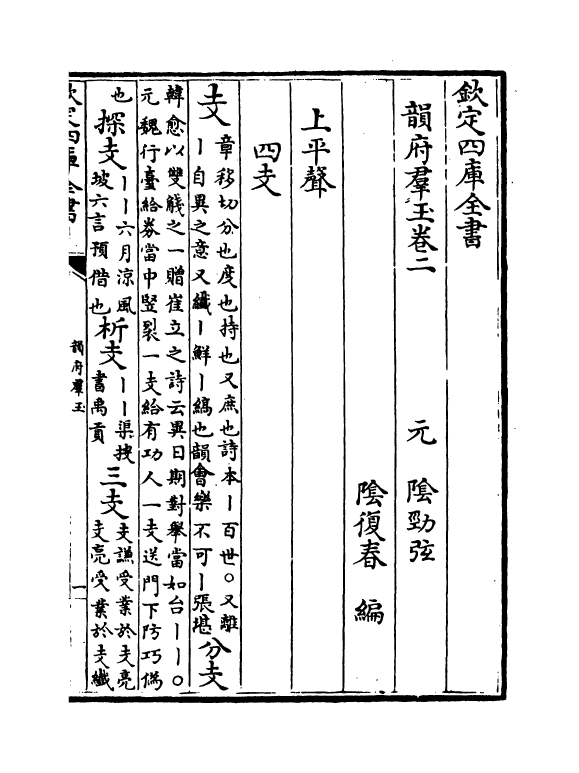 欽定四庫全書
韻府羣玉卷二
元　陰勁弦
陰復春　編
上平聲
四支
支章移切分也度也持也又庶也詩本丨百世○又離
丨自異之意又纖丨鮮丨縞也韻會樂不可丨張堪分支
韓愈以雙觴之一贈崔立之詩云異日期對舉當如台丨丨○
元魏行臺給券當中竪裂一支給有功人一支送門下防巧偽
也探支丨丨六月涼風
坡六言預借也析支丨丨渠搜
書禹貢三支支謙受業於支亮
支亮受業於支纖
欽定四庫全書
韻府羣玉
一